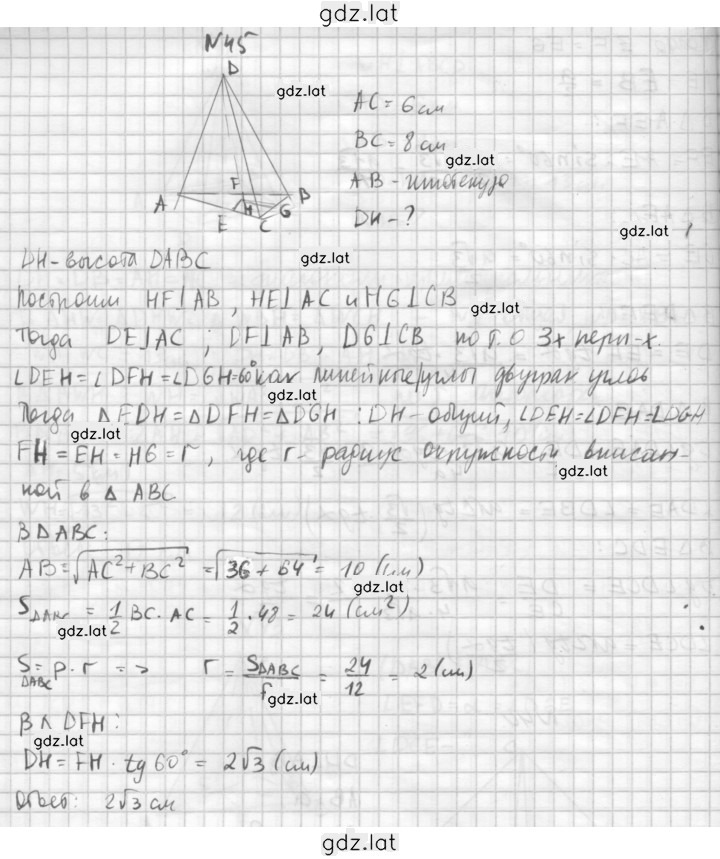 gdz.lat
N45
D
gdz.lat
AC = 6 см
BC = 8 см
gdz.lat
AB - гипотенуза
DH - ?
A
F
B
H
G
E
C
gdz.lat
DH - высота DABC
gdz.lat
Построим HF⊥AB, HE⊥AC и HG⊥CB
gdz.lat
Тогда DE⊥AC; DF⊥AB, DG⊥CB по т. о 3х перп-х.
∠DEH = ∠DFH = ∠DGH = 60° как линейные углы двугран углов
gdz.lat
Тогда △EDH = △DFH = △DGH : DH - общий, ∠DEH = ∠DFH = ∠DGH
gdz.lat
FH = EH = HG = r, где r - радиус окружности вписан-
gdz.lat
ной в △ ABC
В △ABC:
AB = √AC² + BC² = √36 + 64 = 10 (см)
gdz.lat
S△ABC = 1/2 BC · AC = 1/2 · 48 = 24 (см²)
gdz.lat
S△ABC = p · r => r = S△ABC/p = 24/12 = 2 (см)
gdz.lat
В △ DFH:
gdz.lat
DH = FH · tg 60° = 2√3 (см)
Ответ: 2√3 см
gdz.lat